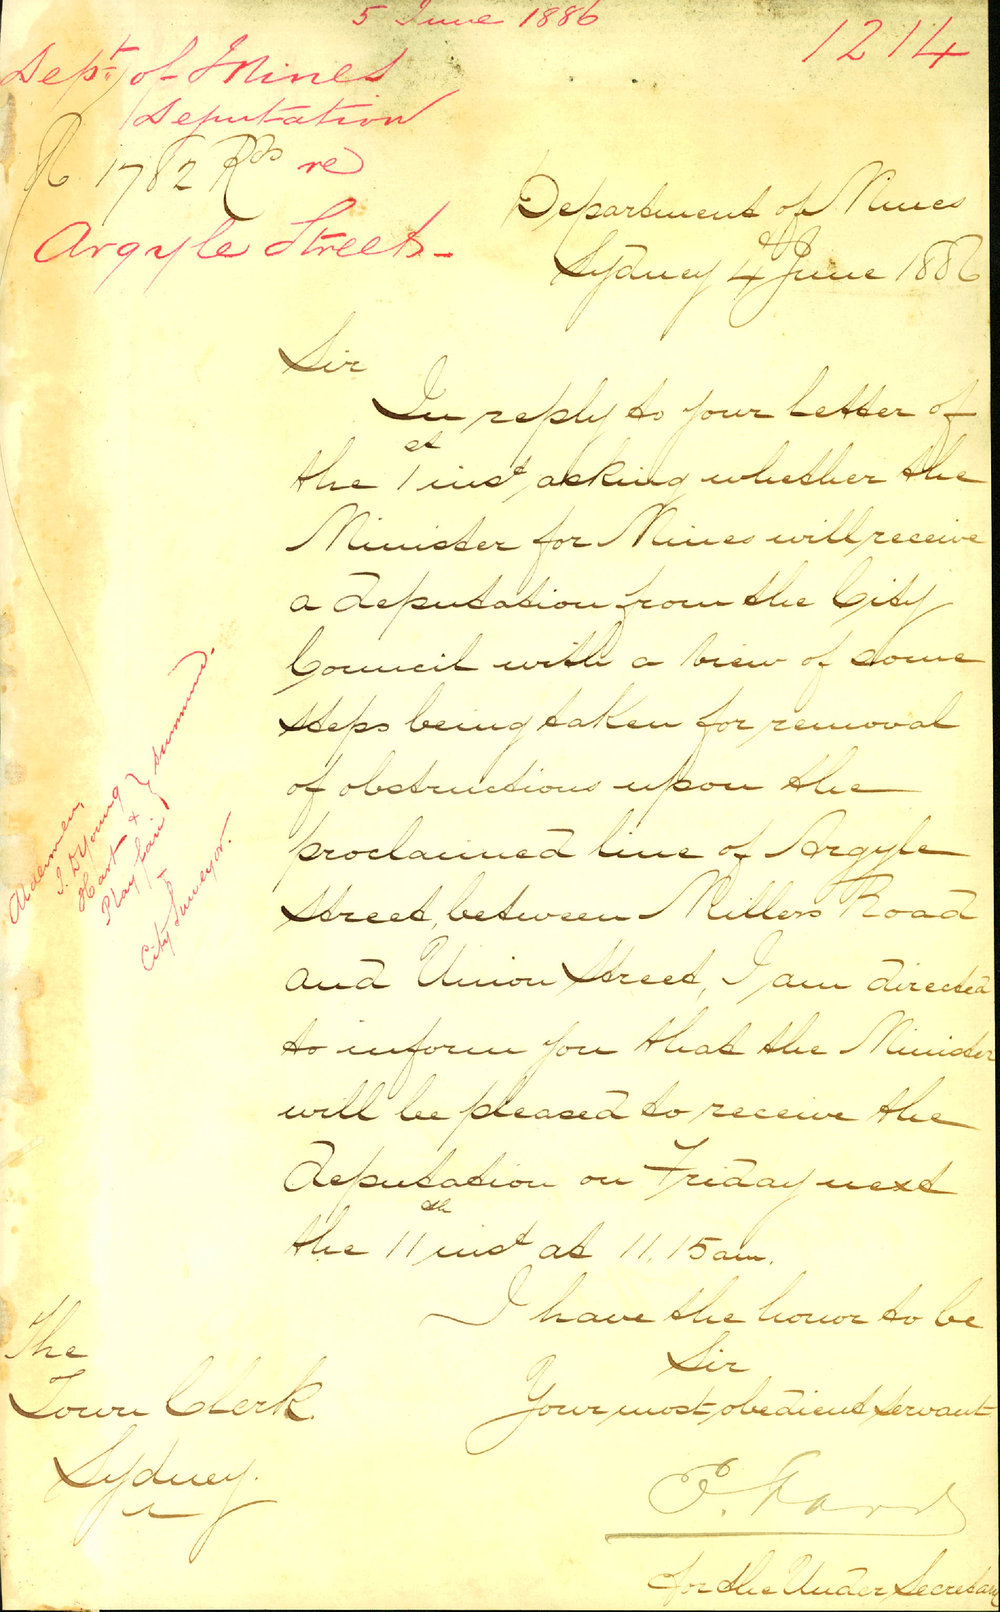 5 June 1886
1214
Dept. of Mines
Deputation
R 1782 Rds re
Argyle Street -
Department of Mines
Sydney 4th June 1886
Sir
In reply to your letter of
the 1st inst, asking whether the
Minister for Mines will receive
a deputation from the City
Council with a view of some
steps being taken for removal
of obstructions upon the
proclaimed line of Argyle
Street, between Millers Road
and Union Street, I am directed
to inform you that the Minister
will be pleased to receive the
deputation on Friday next
the 11th inst at 11.15 am.
I have the honor to be
Sir
Your most obedient servant
for the Under Secretary
The
Town Clerk.
Sydney.
Aldermen,
J. D. Young
Hart &
Playfair
} summnd.
City Surveyor.